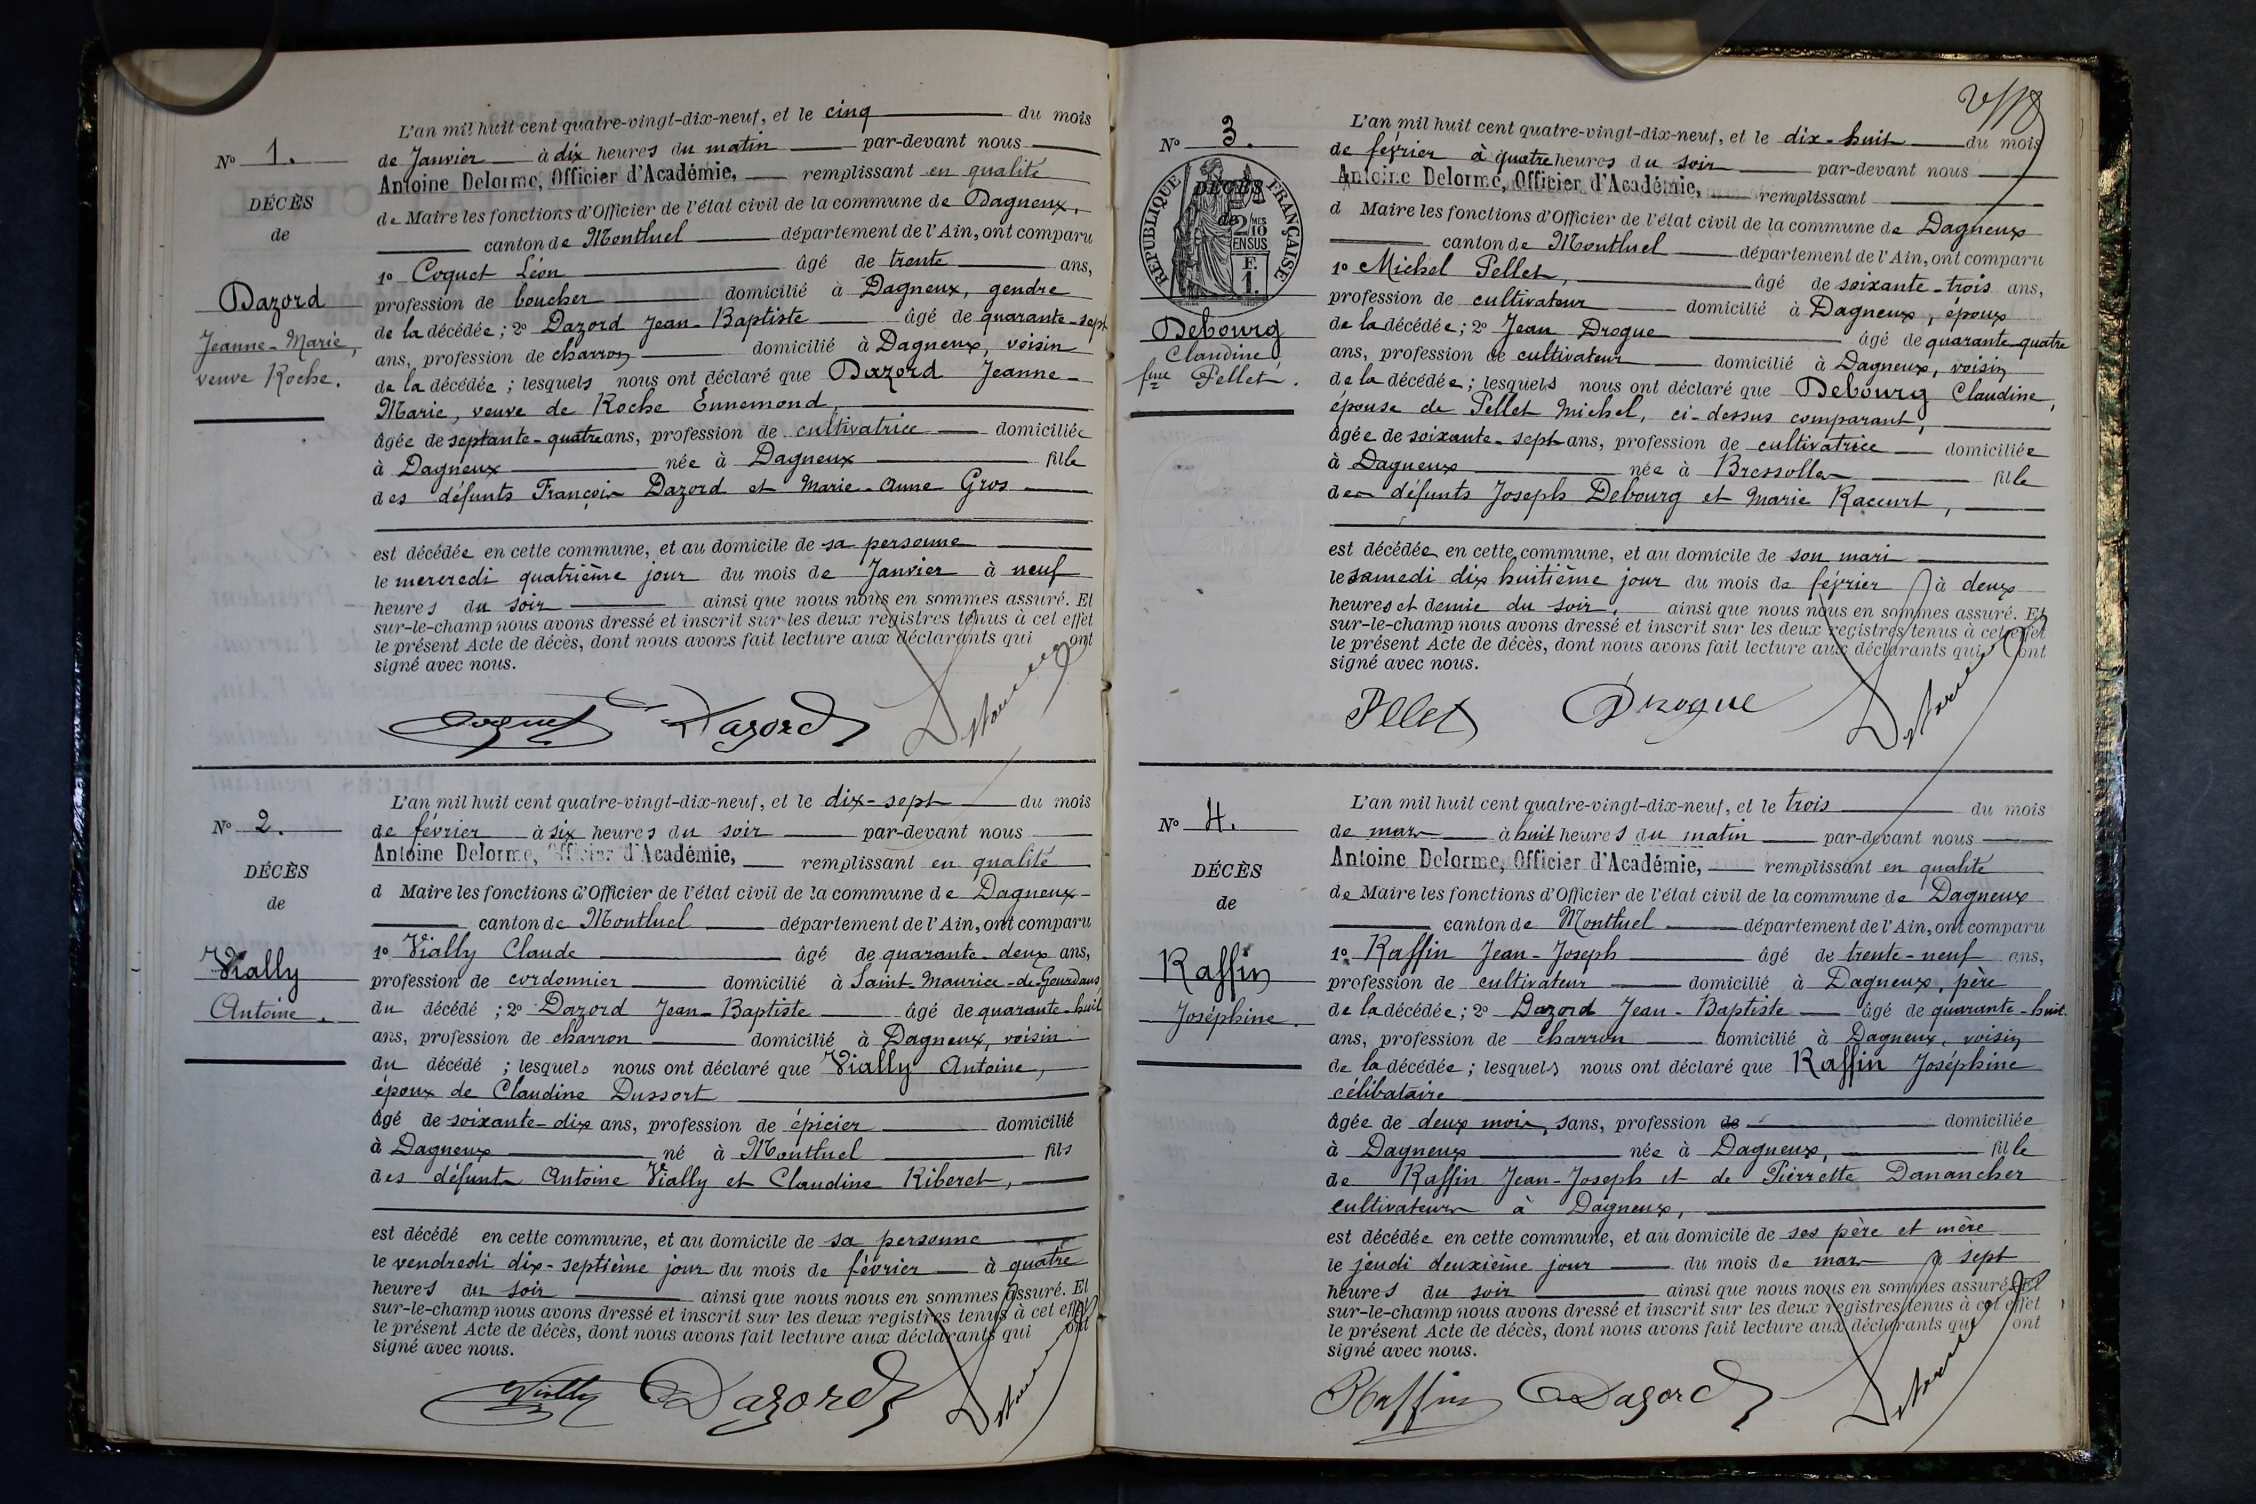 L'an mil huit cent quatre-vingt-dix-neuf, et le cinq du mois
No 1.
de Janvier à dix heures du matin par-devant nous
Antoine Delorme, Officier d'Académie, remplissant en qualité
DÉCÈS
de Maire les fonctions d'Officier de l'état civil de la commune de Dagneux,
de
canton de Montluel département de l'Ain, ont comparu
1o Coquet Léon âgé de trente ans,
Dazord
profession de boucher domicilié à Dagneux, gendre
Jeanne-Marie,
de la décédée; 2o Dazord Jean-Baptiste âgé de quarante-sept
veuve Roche.
ans, profession de charron domicilié à Dagneux, voisin
de la décédée; lesquels nous ont déclaré que Dazord Jeanne-
Marie, veuve de Roche Ennemond,
âgée de septante-quatre ans, profession de cultivatrice domiciliée
à Dagneux née à Dagneux fille
des défunts François Dazord et Marie-Anne Gros
est décédée en cette commune, et au domicile de sa personne
le mercredi quatrième jour du mois de Janvier à neuf
heures du soir ainsi que nous nous en sommes assuré. Et
sur-le-champ nous avons dressé et inscrit sur les deux registres tenus à cet effet
le présent Acte de décès, dont nous avons fait lecture aux déclarants qui ont
signé avec nous.
Coquet Dazord Delorme
L'an mil huit cent quatre-vingt-dix-neuf, et le dix-sept du mois
No 2.
de février à six heures du soir par-devant nous
Antoine Delorme, Officier d'Académie, remplissant en qualité
DÉCÈS
d Maire les fonctions d'Officier de l'état civil de la commune de Dagneux-
de
canton de Montluel département de l'Ain, ont comparu
1o Vially Claude âgé de quarante-deux ans,
Vially
profession de cordonnier domicilié à Saint-Maurice-de-Gourdans
Antoine.
du décédé; 2o Dazord Jean-Baptiste âgé de quarante-huit
ans, profession de charron domicilié à Dagneux, voisin
du décédé; lesquels nous ont déclaré que Vially Antoine,
époux de Claudine Dussort
âgé de soixante-dix ans, profession de épicier domicilié
à Dagneux né à Montluel fils
des défunts Antoine Vially et Claudine Riberet,
est décédé en cette commune, et au domicile de sa personne
le vendredi dix-septième jour du mois de février à quatre
heures du soir ainsi que nous nous en sommes assuré. Et
sur-le-champ nous avons dressé et inscrit sur les deux registres tenus à cet effet
le présent Acte de décès, dont nous avons fait lecture aux déclarants qui ont
signé avec nous.
Vially Dazord Delorme
L'an mil huit cent quatre-vingt-dix-neuf, et le dix-huit du mois
No 3.
de février à quatre heures du soir par-devant nous
Antoine Delorme, Officier d'Académie, remplissant
RÉPUBLIQUE FRANÇAISE
DÉCÈS
de
2/10 EN SUS
F. 1.
d Maire les fonctions d'Officier de l'état civil de la commune de Dagneux
canton de Montluel département de l'Ain, ont comparu
1o Michel Pellet, âgé de soixante-trois ans,
profession de cultivateur domicilié à Dagneux, époux
Debourg
de la décédée; 2o Jean Drogue âgé de quarante-quatre
Claudine
ans, profession de cultivateur domicilié à Dagneux, voisin
fme Pellet.
de la décédée; lesquels nous ont déclaré que Debourg Claudine,
épouse de Pellet Michel, ci-dessus comparant,
âgée de soixante-sept ans, profession de cultivatrice domiciliée
à Dagneux née à Bressolles fille
des défunts Joseph Debourg et Marie Raccurt,
est décédée en cette commune, et au domicile de son mari
le samedi dix huitième jour du mois de février à deux
heures et demie du soir, ainsi que nous nous en sommes assuré. Et
sur-le-champ nous avons dressé et inscrit sur les deux registres tenus à cet effet
le présent Acte de décès, dont nous avons fait lecture aux déclarants qui ont
signé avec nous.
Pellet Drogue Delorme
L'an mil huit cent quatre-vingt-dix-neuf, et le trois du mois
No 4.
de mars à huit heures du matin par-devant nous
Antoine Delorme, Officier d'Académie, remplissant en qualité
DÉCÈS
de Maire les fonctions d'Officier de l'état civil de la commune de Dagneux
de
canton de Montluel département de l'Ain, ont comparu
1o Raffin Jean-Joseph âgé de trente-neuf ans,
Raffin
profession de cultivateur domicilié à Dagneux, père
Joséphine.
de la décédée; 2o Dazord Jean-Baptiste âgé de quarante-huit
ans, profession de charron domicilié à Dagneux, voisin
de la décédée; lesquels nous ont déclaré que Raffin Joséphine
célibataire
âgée de deux mois, sans, profession de domiciliée
à Dagneux née à Dagneux, fille
de Raffin Jean-Joseph et de Pierrette Danancher
cultivateurs à Dagneux,
est décédée en cette commune, et au domicile de ses père et mère
le jeudi deuxième jour du mois de mars à sept
heures du soir ainsi que nous nous en sommes assuré. Et
sur-le-champ nous avons dressé et inscrit sur les deux registres tenus à cet effet
le présent Acte de décès, dont nous avons fait lecture aux déclarants qui ont
signé avec nous.
Raffin Dazord Delorme